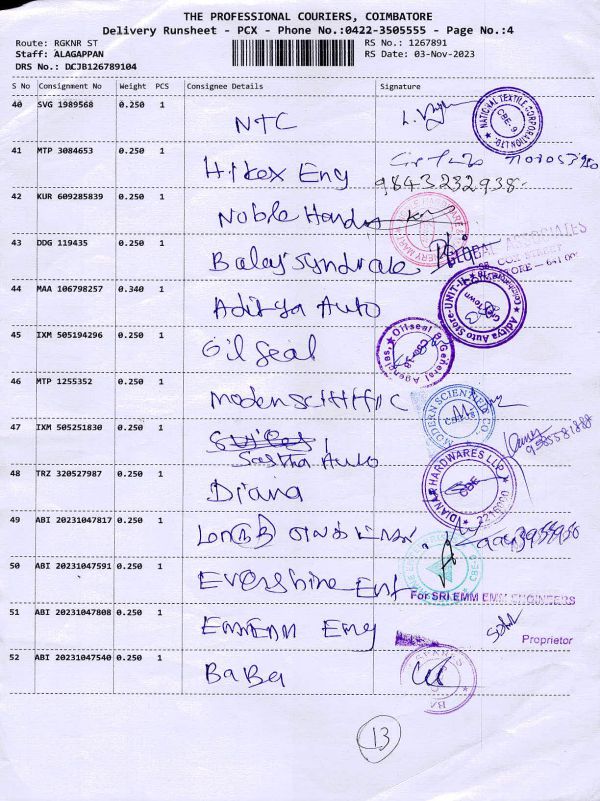 THE PROFESSIONAL COURIERS, COIMBATORE
Delivery Runsheet - PCX - Phone No.:0422-3505555 - Page No.:4
Route: RGKNR ST RS No.: 1267891
Staff: ALAGAPPAN RS Date: 03-Nov-2023
DRS No.: DCJB126789104
S No Consignment No Weight PCS Consignee Details Signature
40 SVG 1989568 0.250 1 NTC
NATIONAL TEXTILE CORPORATION LTD. CBE-9
41 MTP 3084653 0.250 1 Hitex Eng
9843232938
42 KUR 609285839 0.250 1 Noble Hardw
43 DDG 119435 0.250 1 Balaji Syndicate
GLOBAL ASSOCIATES
44 MAA 106798257 0.340 1 Aditya Auto
Aditya Auto Store-UNIT-II
45 IXM 505194296 0.250 1 Oil Seal
Oilseal & General Agencies, CBE-18
46 MTP 1255352 0.250 1 Moden Scitiffic
MODERN SCIENTIFIC CO.
47 IXM 505251830 0.250 1 Sastha Auto
48 TRZ 320527987 0.250 1 Diana
DIANA HARDWARES LLP CBE
49 ABI 20231047817 0.250 1
50 ABI 20231047591 0.250 1 Evershine Ent
For SRI EMM EMM ENGINEERS
51 ABI 20231047808 0.250 1 EMMEMM Eng
Proprietor
52 ABI 20231047540 0.250 1 BaBa
13